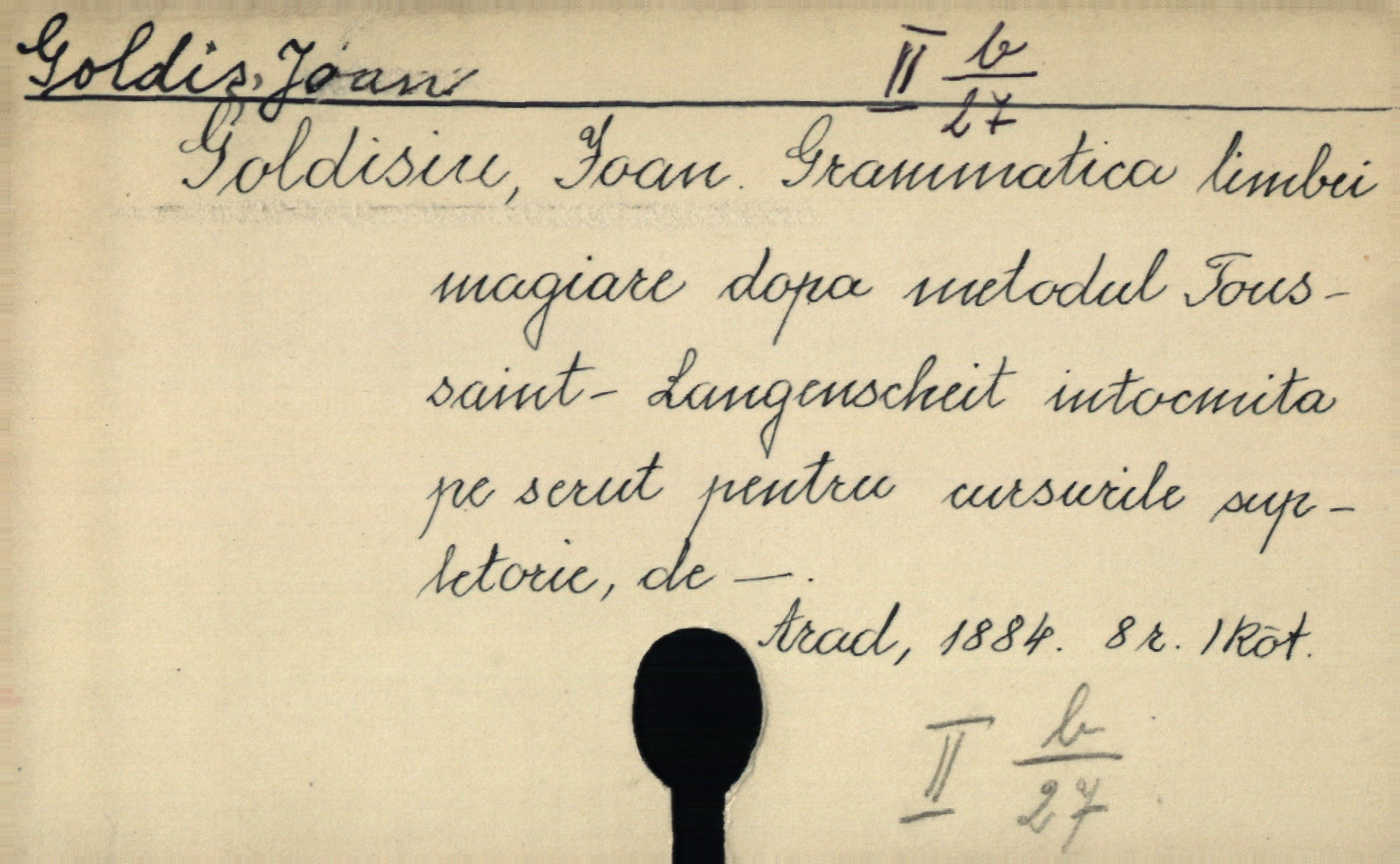 Goldis, Joan II b/27
Goldisiu, Joan. Grammatica limbei
magiare dopa metodul Tous-
saint- Langenscheit intocmita
pe scrut pentru cursurile sup-
letorie, de —.
Arad, 1884. 8 r. 1 Köt.
II b/27